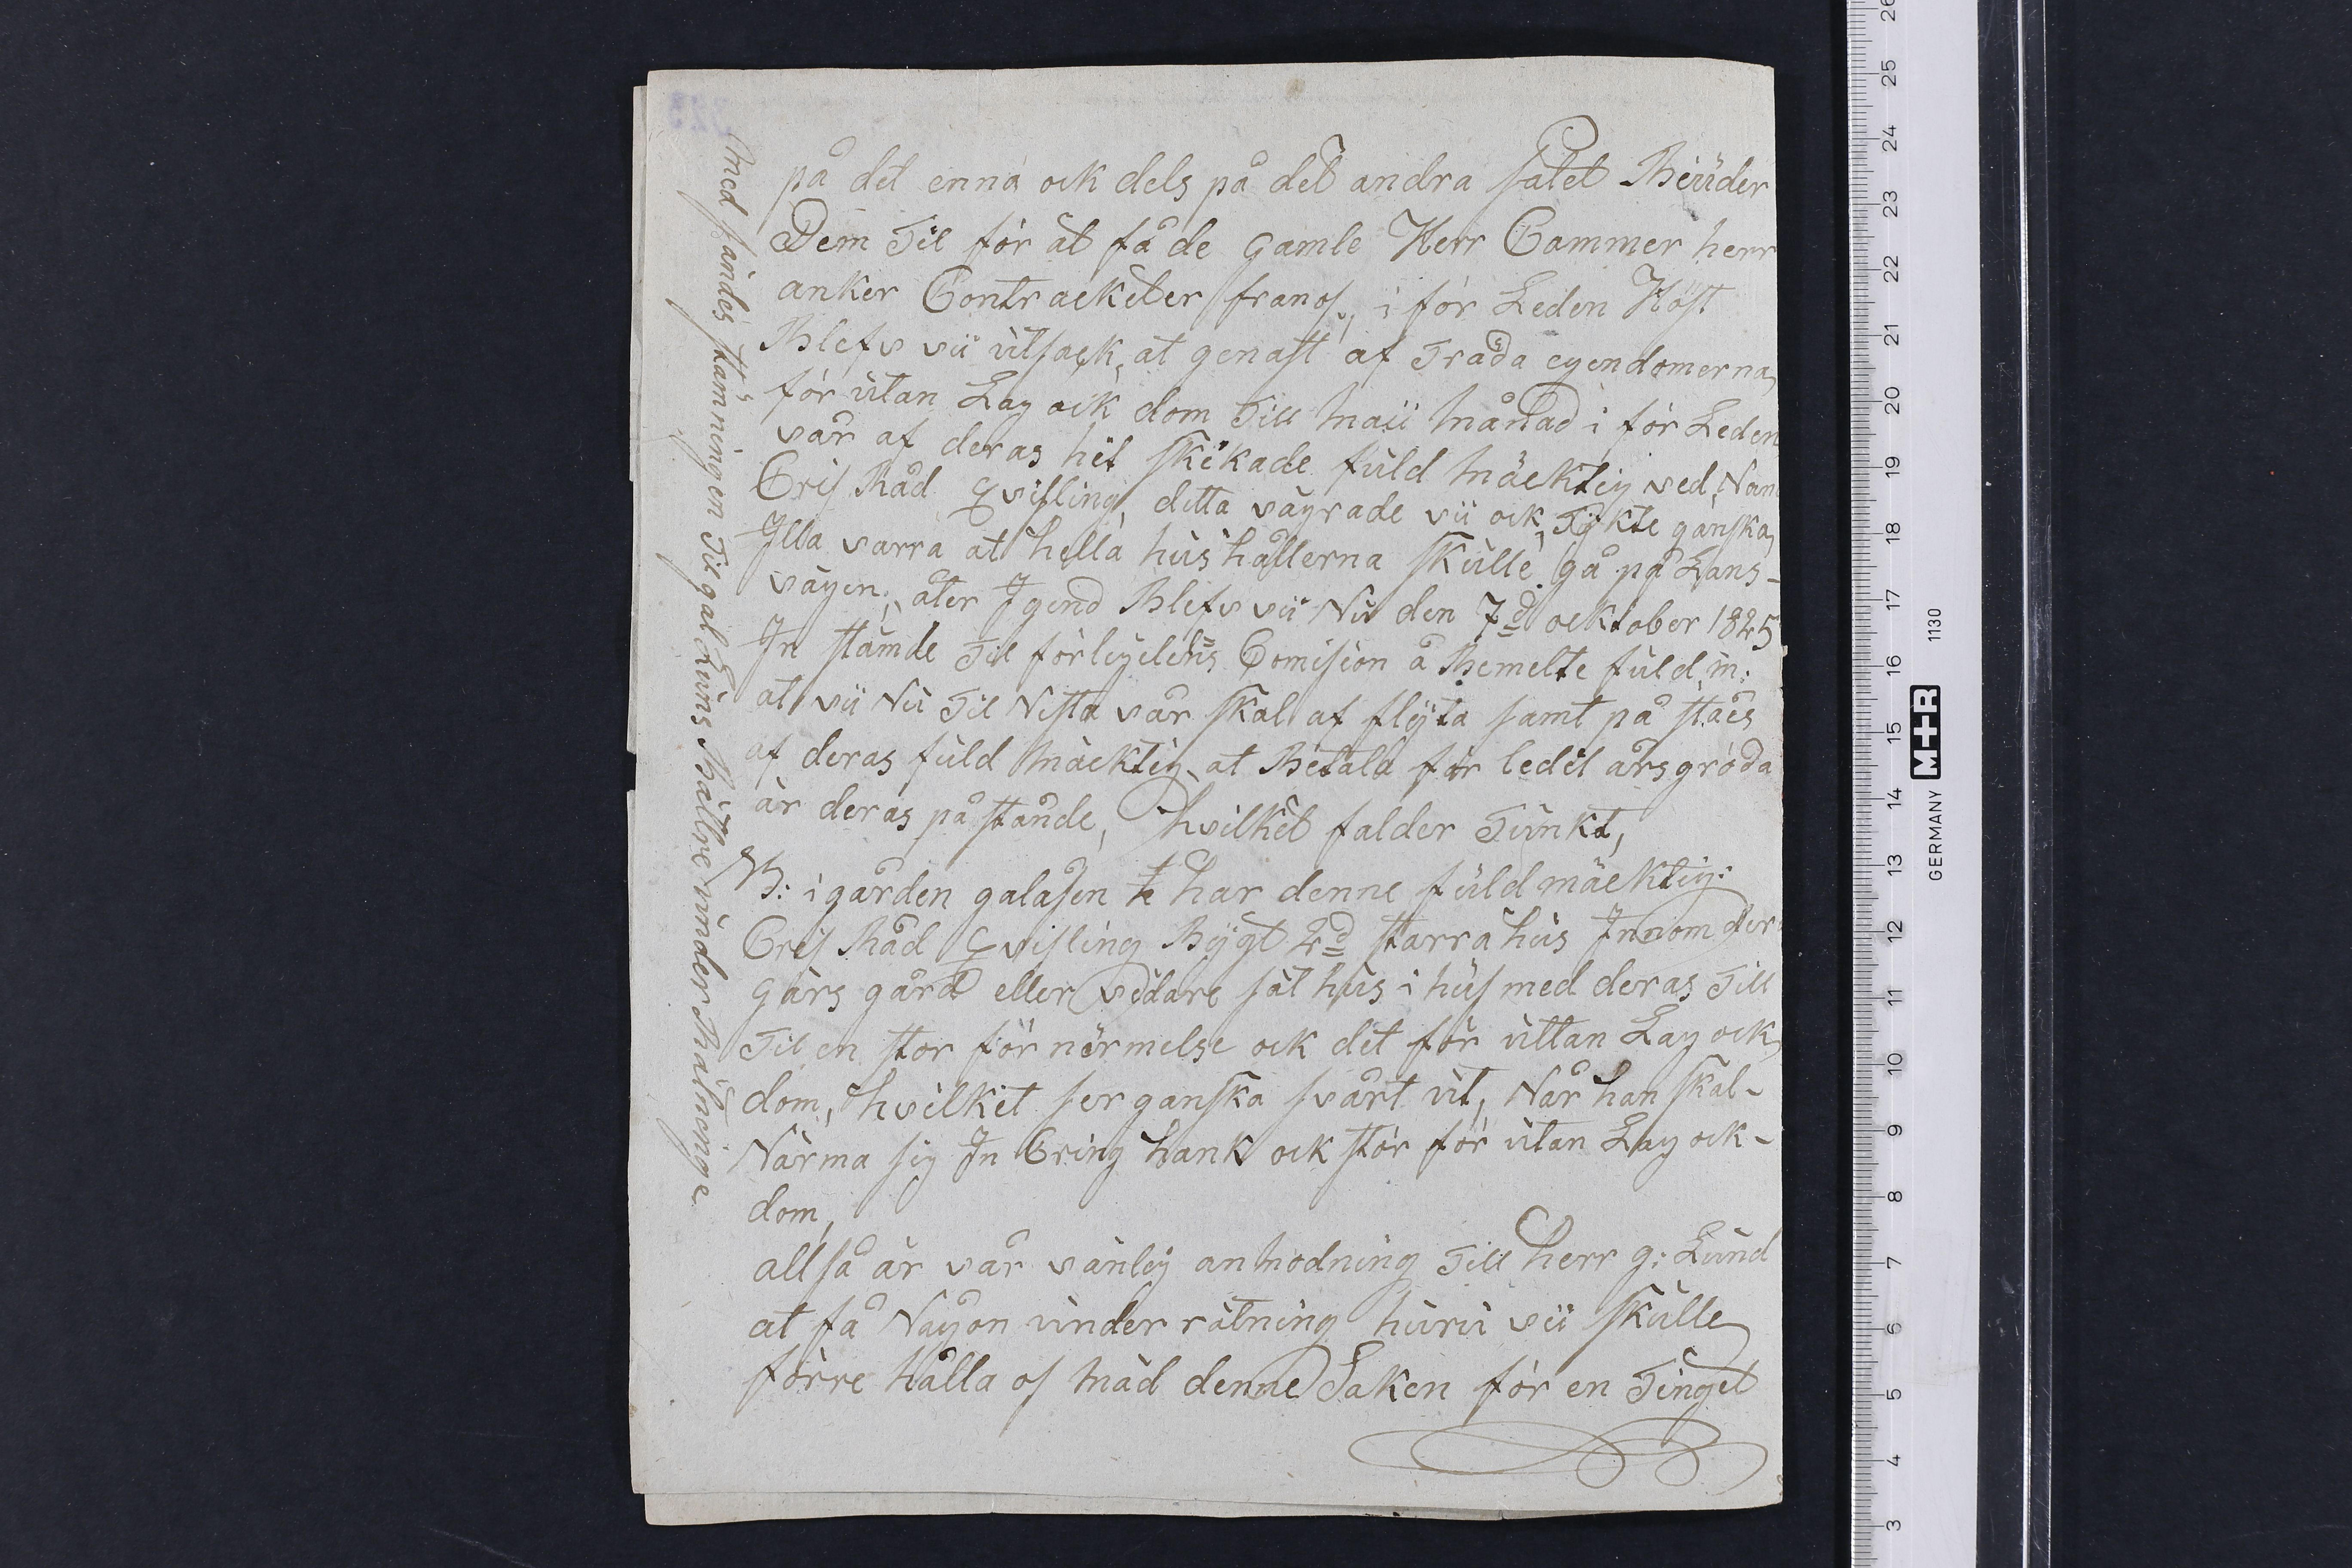 på det enna ock dels på det andra sätet Biüder
Dem Til för at få de gamle Herr Cammer herr
anker Contraeketer frånos, i för Leden Höst
Blefv vii ütsack, at genast af Trada egendomerna,
för ütan Lag ock dom Till Maii Månad i för Leden
vår af deras hit skikade füld Mäcktig ved, Nam
Cris Råd Qvisling, detta vägrade vii ock, Tÿkte ganska
Illa varra at hella hüs hållerna skülle gå på Lans-
vägen, åter Igend Blefv vii Nü den 7d ocktober 1825
In stämde Til förligelens Comision å Bemelte füld m:
at vii Nü Til Nista vår skal af flÿta samt på stäes
af deras füld Mäcktig, at Betala för ledit års gröda
är deras på stånde, hvilket falder Tünkt,
NB: i gården galasen har denne füldmäcktig:
Cris Råd Qvisling Bÿgt 2d starra hüs Innom der
gärs gård eller vidare sät hüs i hüs med deras Till
Til en stor för närmelse ock dit för üttan Lag ock
dom, hvilkit ser ganska svårt üt, Når han skal-
Närma sig In Cring hank ock stör för ütan Lag ock-
dom,
allså är vår vänlig anmodning Till herr g: Lünd
at få Någon ünder rätning hürü vii skülle
förre hålla os Mäd denne Saken för en Tinget
Med sändes stämningen Til gal Lüns Bättre ünder Rätninge
323
26
25
24
23
22
21
20
19
18
17
16
15
14
13
12
11
10
9
8
7
6
5
4
3
GERMANY M+R 1130